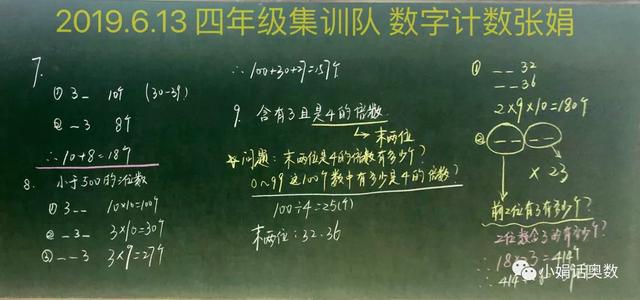 2019.6.13 四年级集训队 数字计数张娟
7.
① 3_ 10个 (30-39)
② _3 8个
∴10+8=18个
8. 小于500的三位数
① 3__ 10×10=100个
② _3_ 3×10=30个
③ __3 3×9=27个
∴100+30+27=157个
9. 含有3且是4的倍数
末两位
问题：末两位是4的倍数有多少个？
0~99 这100个数中有多少是4的倍数？
100÷4=25(个)
末两位：32.36
① __32
__36
2×9×10=180个
②
×23
前2位有3有多少个？
2位数含3的有多少个？
∴18×23=414个
小娟话奥数